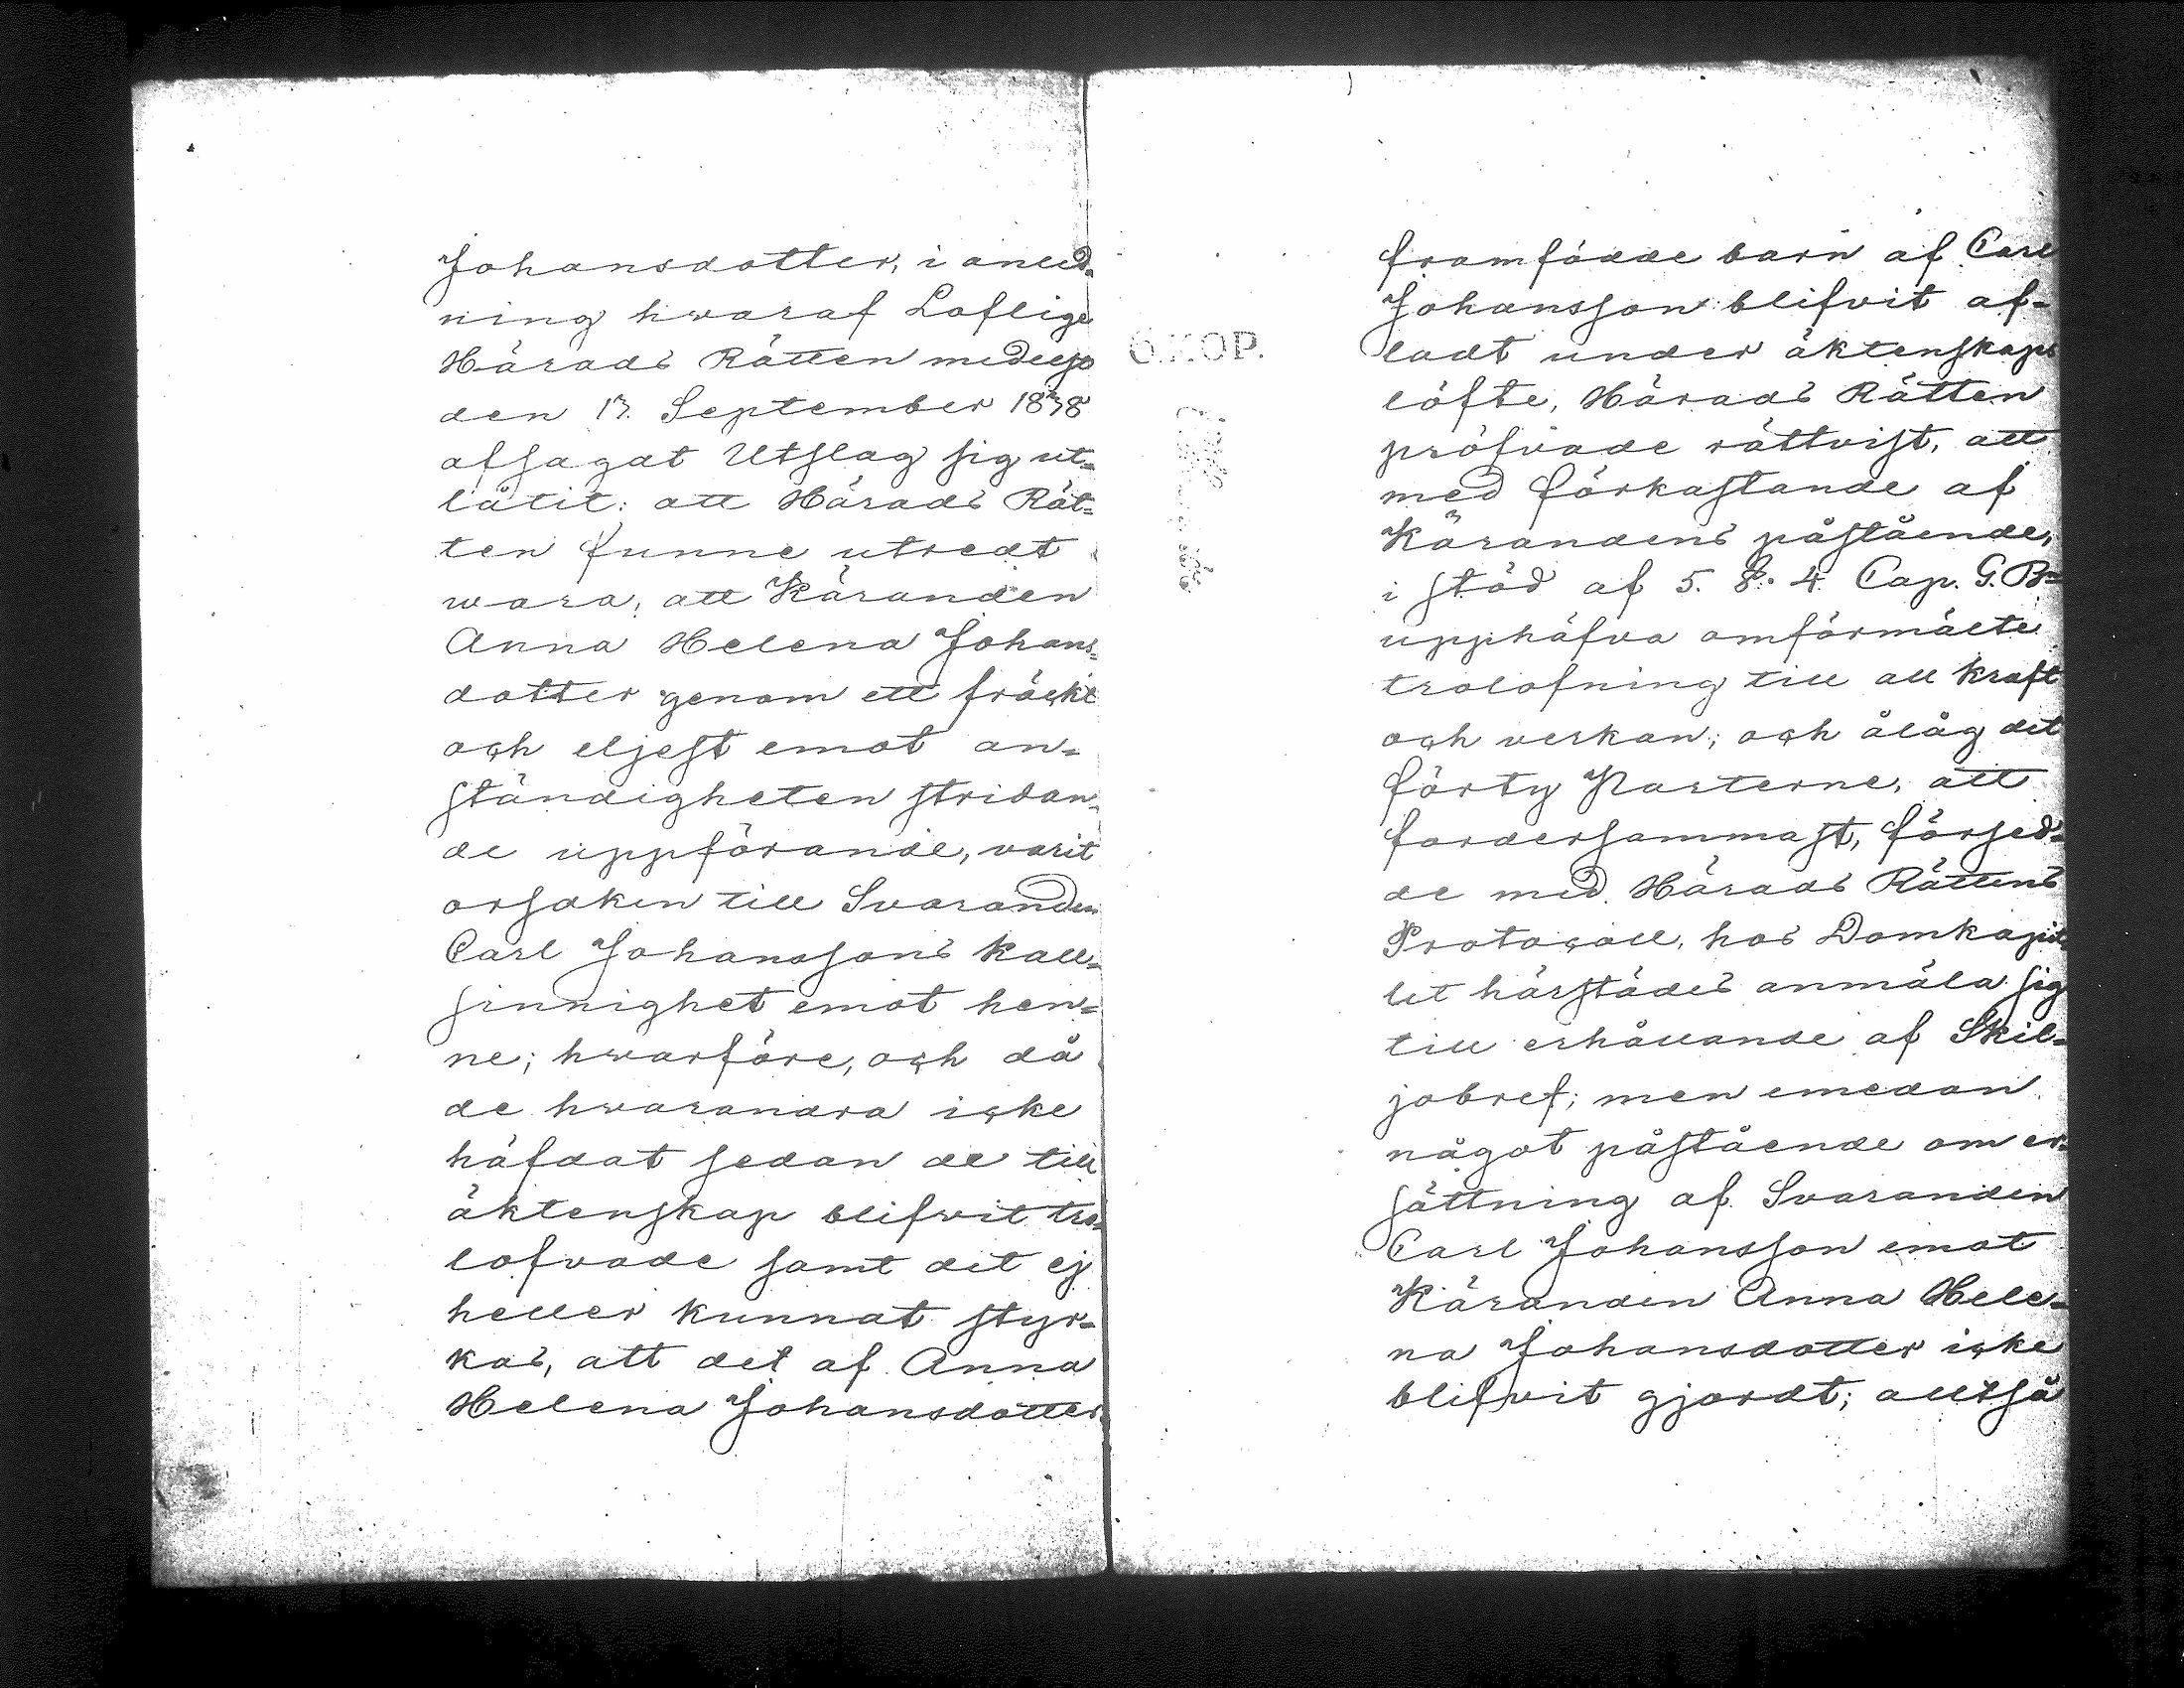 Johansdotter, i anled-
ning hwaraf Loflige
Härads Rätten medelst
den 17. September 1838
afsagat Utslag sig ut-
låtit: att Härads Rät-
ten funne utredt
wara, att Käranden
Anna Helena Johans-
dotter genom ett fräckt
och eljest emot an-
ständigheten stridan-
de uppförande, varit
orsaken till Svaranden
Carl Johanssons kall-
sinnighet emot hen-
ne; hwarföre, och då
de hwarandra icke
häfdat sedan de till
äktenskap blifwit tro-
lofvade samt det ej
heller kunnat styr-
kas, att det af Anna
Helena Johansdotter
Ö.KOP.
framfödde barn af Carl
Johansson blifvit af-
ladt under äktenskaps
löfte, Härads Rätten
pröfvade rättvist, att
med förkastande af
Kärandens påstående,
i stöd af 5. §. 4 Cap. G.B=
upphäfva omförmälte
trolofning till all kraft
och verkan; och ålåg det
förty Parterne, att
fordersammast, försed-
de med Härads Rättens
Protocoll, hos Domkapit-
let härstädes anmäla sig
till erhållande af Skil-
jobref; men emedan
något påstående om er-
sättning af Svaranden
Carl Johansson emot
Käranden Anna Hele-
na Johansdotter icke
blifvit gjordt; alltså